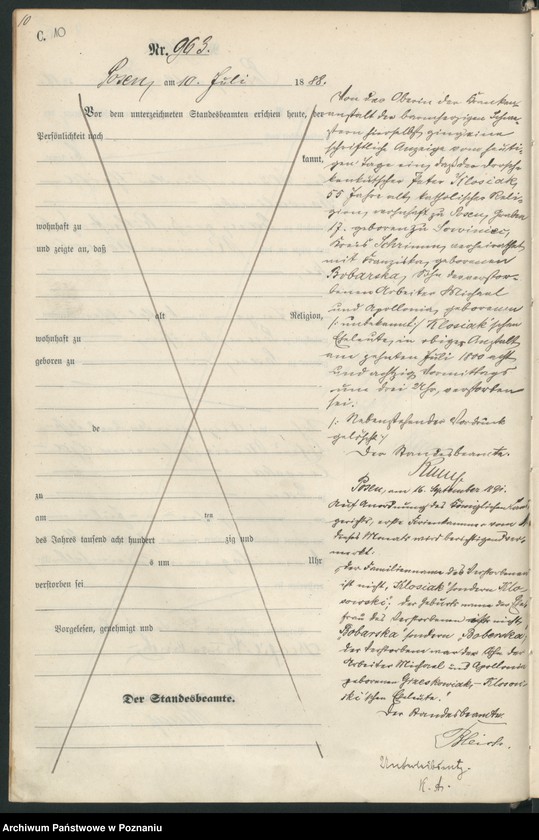 10
C. 10
Nr. 963.
Posen, am 10. Juli 1888.
Vor dem unterzeichneten Standesbeamten erschien heute, der
Persönlichkeit nach
kannt,
wohnhaft zu
und zeigte an, daß
alt Religion,
wohnhaft zu
geboren zu
de
zu
am ten
des Jahres tausend acht hundert zig und
s um Uhr
verstorben sei
Vorgelesen, genehmigt und
Der Standesbeamte.
Von das Oberin der Kranken
anstalt der barmherzigen Schwe
stern hierselbst, ging eine
schriftliche Anzeige vom heuti-
gen Tage ein, daß der Drosch-
kenkutscher Peter Klosiak,
55 Jahre alt, katholischer Reli-
gion, wohnhaft zu Posen, Graben
17. geboren zu
Kreis Schrimm, verheirathet
mit Franziska, geborenen
Bobarska, Sohn der verstor-
benen Arbeiter Michael
und Apollonia, geborenen
/: unbekannt :/ Klosiak'schen
Eheleute, in obiger Anstalt
am zehnten Juli 1800 acht
und achtzig Vormittags
um drei Uhr, verstorben
sei.
/: Nebenstehender Vordruck
gelöscht :/
Der Standesbeamte.
Posen, am 16. September 1891.
Auf Anordnung des Königlichen Land
gerichts, erste Ferienkammer vom
dieses Monats wird berichtigend ver-
merkt:
"Der Familienname des Verstorbenen
ist nicht "Klosiak" sondern "Klo-
sowski", der Geburtsname der Ehe
frau des Verstorbenen nicht
"Bobarska" sondern "Boberska",
der Verstorbene war der Sohn der
Arbeiter Michael und Apollonia
geborenen Grzeskowiak - Klosow-
ski'schen Eheleute."
Der Standesbeamte.
K. A.
Archiwum Państwowe w Poznaniu